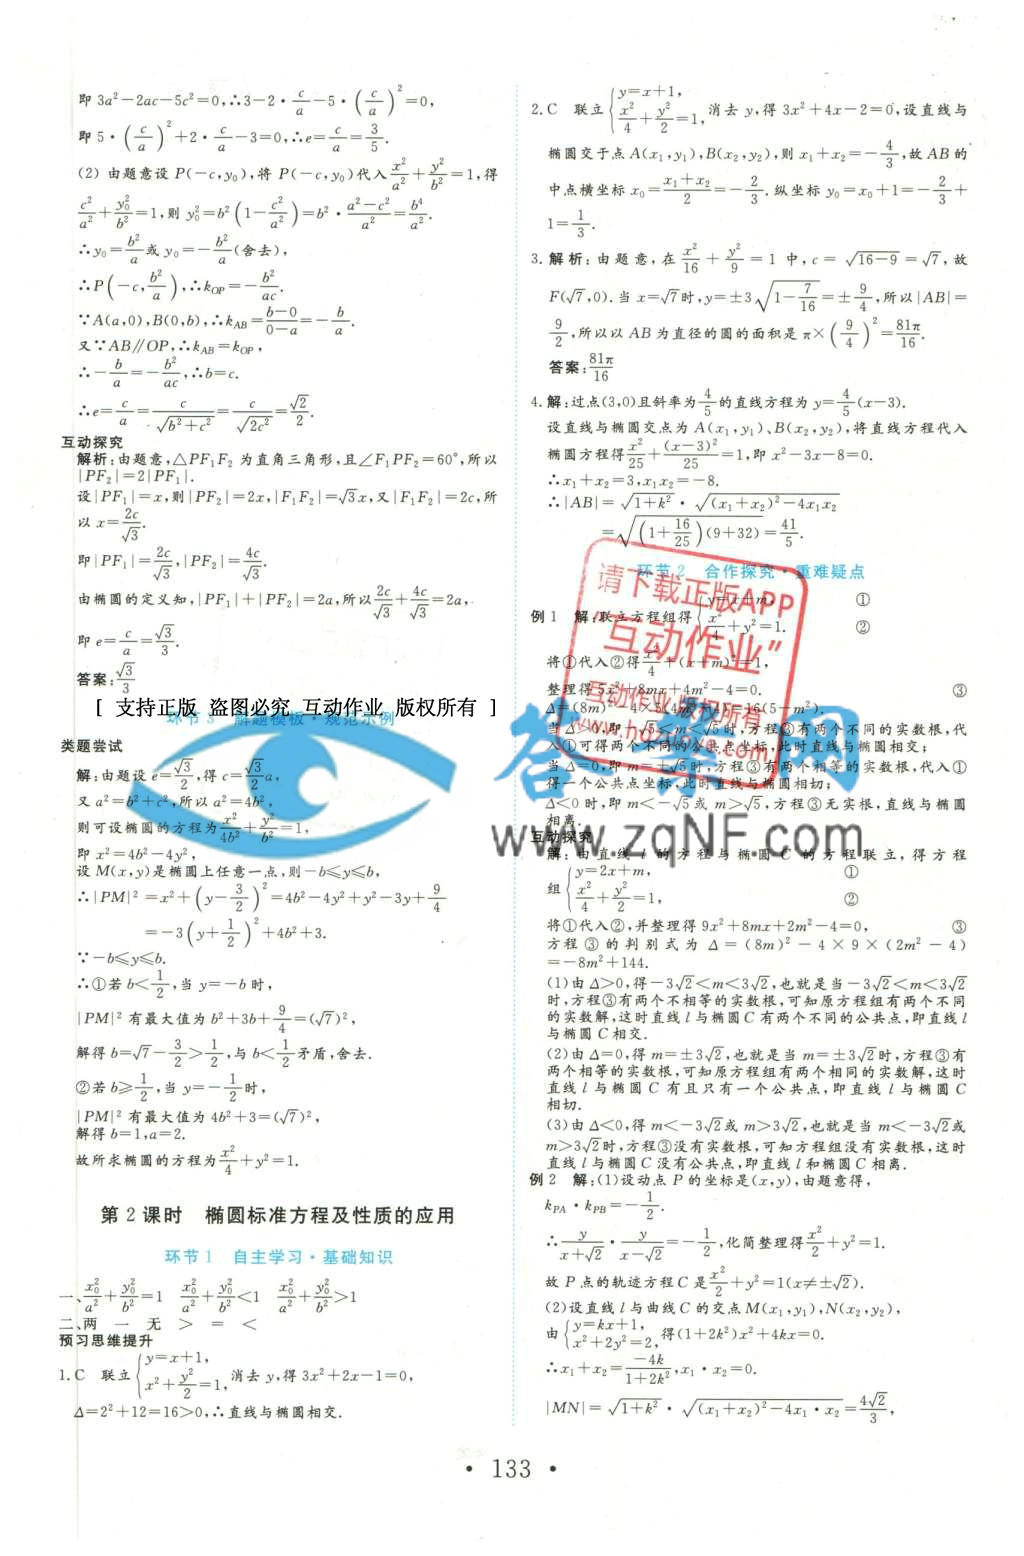 即3a²-2ac-5c²=0,∴3-2·c/a-5·(c/a)²=0,
即5·(c/a)²+2·c/a-3=0,∴e=c/a=3/5.
(2) 由题意设P(-c,y₀),将P(-c,y₀)代入x²/a²+y²/b²=1,得
c²/a²+y₀²/b²=1,则y₀²=b²(1-c²/a²)=b²·(a²-c²)/a²=b⁴/a².
∴y₀=b²/a或y₀=-b²/a(舍去),
∴P(-c,b²/a),∴k_OP=-b²/ac.
∵A(a,0),B(0,b),∴k_AB=(b-0)/(0-a)=-b/a.
又∵AB∥OP,∴k_AB=k_OP,
∴-b/a=-b²/ac,∴b=c.
∴e=c/a=c/√(b²+c²)=c/√(2c²)=√2/2.
互动探究
解析:由题意,△PF₁F₂为直角三角形,且∠F₁PF₂=60°,所以
|PF₂|=2|PF₁|.
设|PF₁|=x,则|PF₂|=2x,|F₁F₂|=√3x,又|F₁F₂|=2c,所
以x=2c/√3.
即|PF₁|=2c/√3,|PF₂|=4c/√3.
由椭圆的定义知,|PF₁|+|PF₂|=2a,所以2c/√3+4c/√3=2a,
即e=c/a=√3/3.
答案:√3/3
[ 支持正版 盗图必究 互动作业 版权所有 ]
环节3 解题模板·规范示例
类题尝试
解:由题设e=√3/2,得c=√3/2a,
又a²=b²+c²,所以a²=4b²,
则可设椭圆的方程为x²/4b²+y²/b²=1,
即x²=4b²-4y²,
设M(x,y)是椭圆上任意一点,则-b≤y≤b,
∴|PM|²=x²+(y-3/2)²=4b²-4y²+y²-3y+9/4
=-3(y+1/2)²+4b²+3.
∵-b≤y≤b.
∴①若b<1/2,当y=-b时,
|PM|²有最大值为b²+3b+9/4=(√7)²,
解得b=√7-3/2>1/2,与b<1/2矛盾,舍去.
②若b≥1/2,当y=-1/2时,
|PM|²有最大值为4b²+3=(√7)²,
解得b=1,a=2.
故所求椭圆的方程为x²/4+y²=1.
第2课时 椭圆标准方程及性质的应用
环节1 自主学习·基础知识
一、x₀²/a²+y₀²/b²=1 x₀²/a²+y₀²/b²<1 x₀²/a²+y₀²/b²>1
二、两 一 无 > = <
预习思维提升
1.C 联立{y=x+1, x²+y²/2=1,消去y,得3x²+2x-1=0,
Δ=2²+12=16>0,∴直线与椭圆相交.
2.C 联立{y=x+1, x²/4+y²/2=1,消去y,得3x²+4x-2=0,设直线与
椭圆交于点A(x₁,y₁),B(x₂,y₂),则x₁+x₂=-4/3,故AB的
中点横坐标x₀=(x₁+x₂)/2=-2/3.纵坐标y₀=x₀+1=-2/3+
1=1/3.
3.解析:由题意,在x²/16+y²/9=1中,c=√(16-9)=√7,故
F(√7,0).当x=√7时,y=±3√(1-7/16)=±9/4,所以|AB|=
9/2,所以以AB为直径的圆的面积是π×(9/4)²=81π/16.
答案:81π/16
4.解:过点(3,0)且斜率为4/5的直线方程为y=4/5(x-3).
设直线与椭圆交点为A(x₁,y₁)、B(x₂,y₂),将直线方程代入
椭圆方程得x²/25+(x-3)²/25=1,即x²-3x-8=0.
∴x₁+x₂=3,x₁x₂=-8.
∴|AB|=√(1+k²)·√((x₁+x₂)²-4x₁x₂)
=√((1+16/25)(9+32))=41/5.
环节2 合作探究·重难疑点
例1 解:联立方程组得{y=x+m, ① x²/4+y²=1. ②
将①代入②得x²/4+(x+m)²=1,
整理得5x²+8mx+4m²-4=0. ③
Δ=(8m)²-4×5(4m²-4)=16(5-m²).
当Δ>0,即-√5<m<√5时,方程③有两个不同的实数根,代
入①可得两个不同的公共点坐标,此时直线与椭圆相交;
当Δ=0,即m=±√5时,方程③有两个相等的实数根,代入①
得一个公共点坐标,此时直线与椭圆相切;
Δ<0时,即m<-√5或m>√5,方程③无实根,直线与椭圆
相离.
互动探究
解:由直线l的方程与椭圆C的方程联立,得方程
组{y=2x+m, ① x²/4+y²/2=1, ②
将①代入②,并整理得9x²+8mx+2m²-4=0, ③
方程③的判别式为Δ=(8m)²-4×9×(2m²-4)
=-8m²+144.
(1)由Δ>0,得-3√2<m<3√2,也就是当-3√2<m<3√2
时,方程③有两个不相等的实数根,可知原方程组有两个不同
的实数解,这时直线l与椭圆C有两个不同的公共点,即直线l
与椭圆C相交.
(2)由Δ=0,得m=±3√2,也就是当m=±3√2时,方程③有
两个相等的实数根,可知原方程组有两个相同的实数解,这时
直线l与椭圆C有且只有一个公共点,即直线l与椭圆C
相切.
(3)由Δ<0,得m<-3√2或m>3√2,也就是当m<-3√2或
m>3√2时,方程③没有实数根,可知方程组没有实数根,这时
直线l与椭圆C没有公共点,即直线l和椭圆C相离.
例2 解:(1)设动点P的坐标是(x,y),由题意得,
k_PA·k_PB=-1/2.
∴y/(x+√2)·y/(x-√2)=-1/2,化简整理得x²/2+y²=1.
故P点的轨迹方程C是x²/2+y²=1(x≠±√2).
(2)设直线l与曲线C的交点M(x₁,y₁),N(x₂,y₂),
由{y=kx+1, x²+2y²=2.得(1+2k²)x²+4kx=0.
∴x₁+x₂=-4k/(1+2k²),x₁·x₂=0.
|MN|=√(1+k²)·√((x₁+x₂)²-4x₁·x₂)=4√2/3,
请下载正版APP
“互动作业”
互动作业 版权所有
答案网
www.zqNF.com
• 133 •